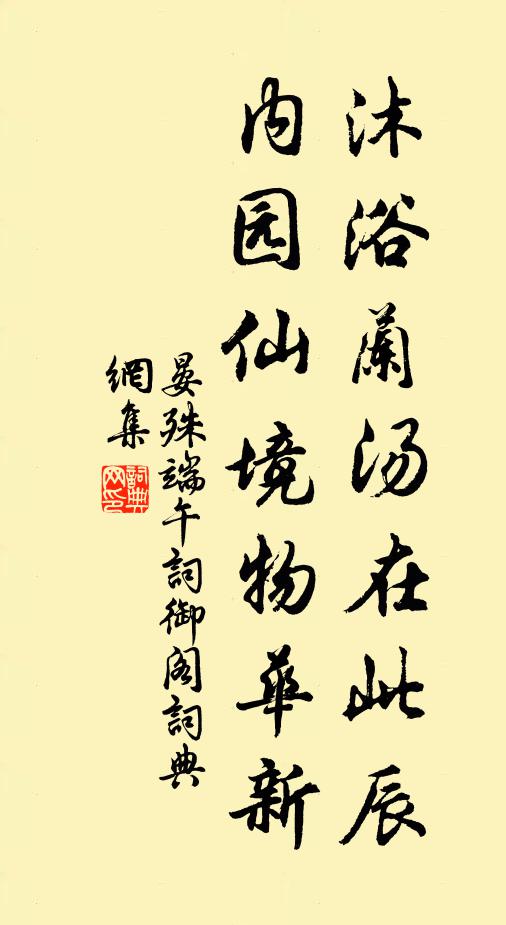 沐浴蘭汤在此辰
内园仙境物华新
晏殊端午詞御阁詞典
網集
詞典网印